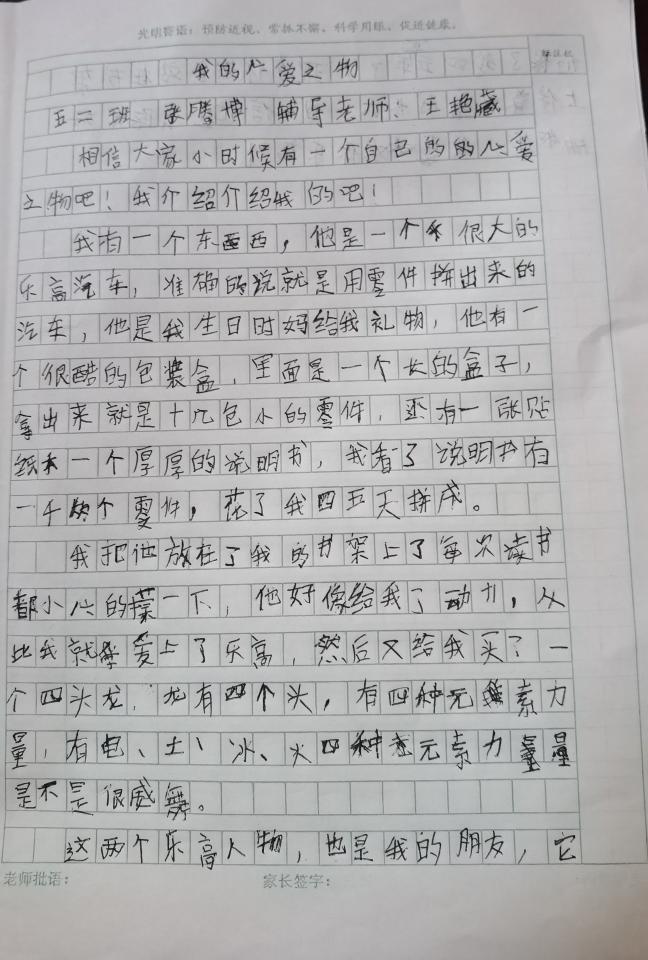 光明警语：预防近视、常抓不懈、科学用眼、促进健康。
我的心爱之物
五二班 张腾博 辅导老师：王艳藏
相信大家小时候有一个自己的的心爱
之物吧！我介绍介绍我的吧！
我有一个东西西，他是一个很大的
乐高汽车，准确的说就是用零件拼出来的
汽车，他是我生日时妈给我礼物，他有一
个很酷的包装盒，里面是一个长的盒子，
拿出来就是十几包小的零件，还有一张贴
纸一个厚厚的说明书，我看了说明书有
一千个零件，花了我四五天拼成。
我把他放在了我的书架上了每次读书
都小心的摸一下，他好像给我了动力，从
比我就爱上了乐高，然后又给我买了一
个四头龙，龙有四个头，有四种元素力
量，有电、土、冰、火四种元素力量量
是不是很威舞。
这两个乐高人物，也是我的朋友，它
老师批语：
家长签字：